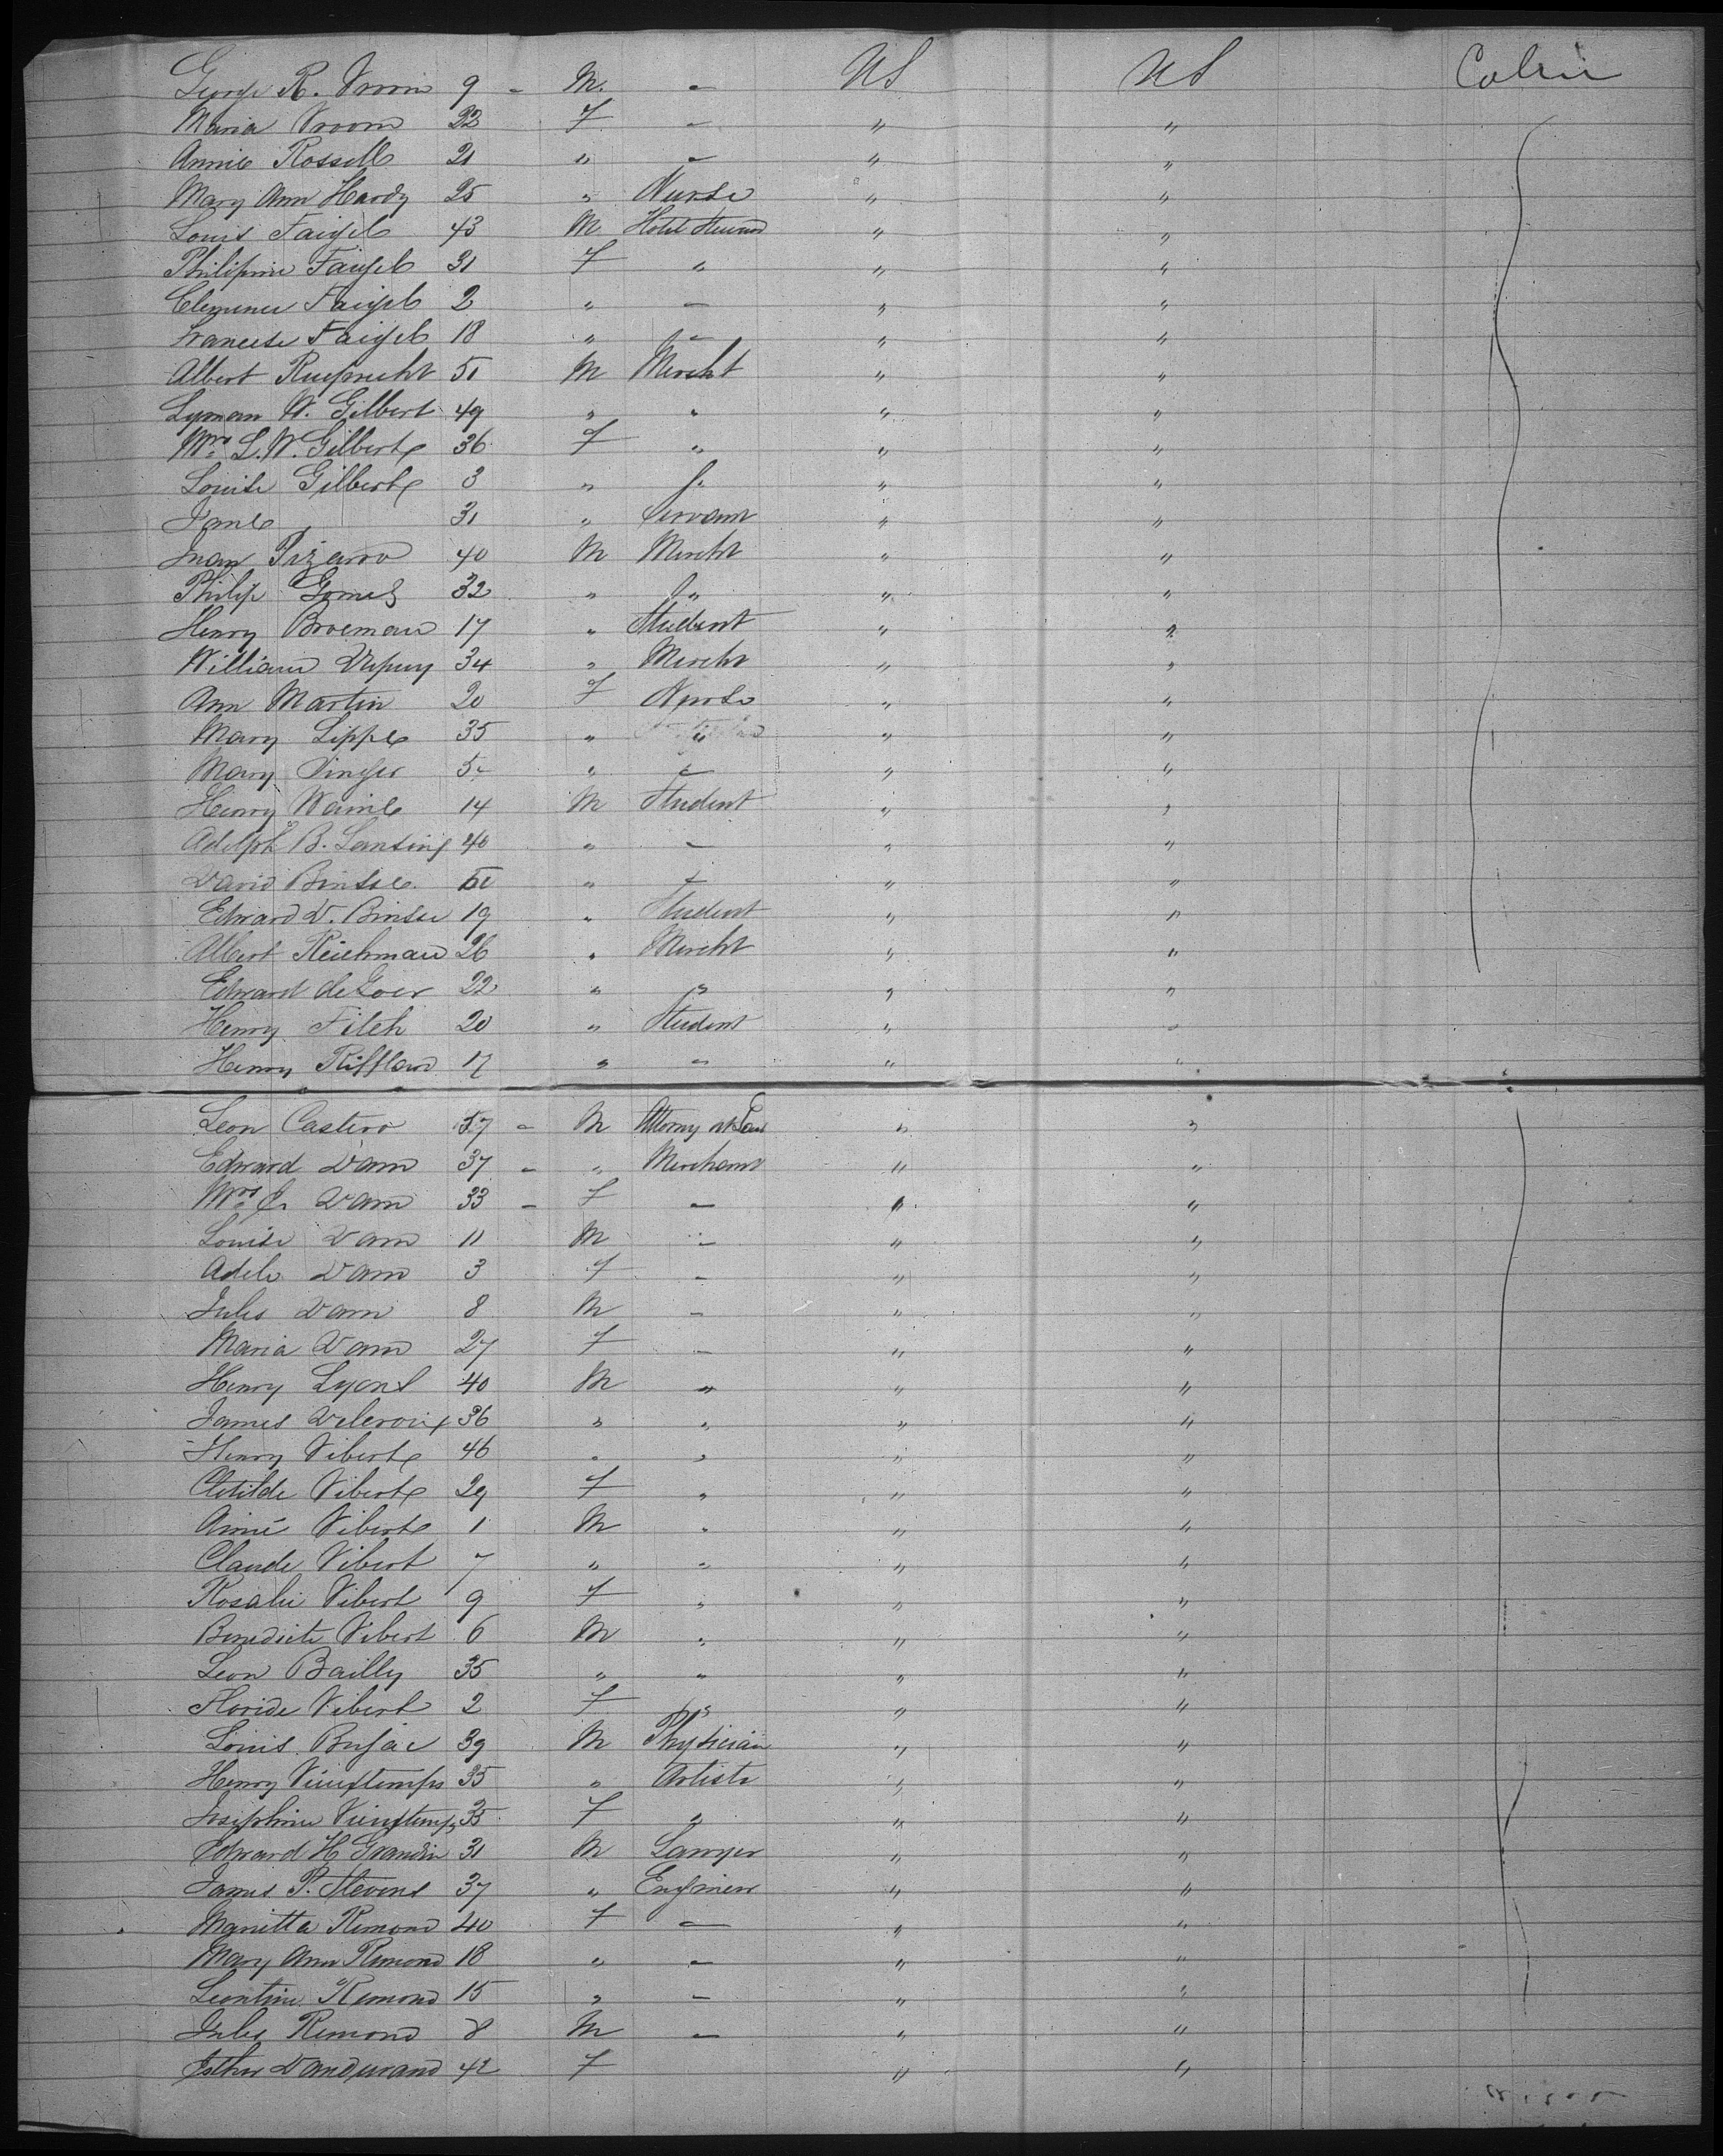 George R. Vroom 9 - M. - US US Cabin
Maria Vroom 22 F - " "
Annie Rossell 21 " - " "
Mary Ann Hardy 25 " Nurse " "
Louis Faigel 43 M Hotel Steward " "
Philipine Faigel 31 F " " "
Clemence Faigel 2 " - " "
Faigel 18 " - " "
Albert Ruprecht 51 M Mercht " "
Lyman W. Gilbert 49 " " " "
Mrs L. W. Gilbert 36 F " " "
Louise Gilbert 3 " " " "
Jane 31 " Servant " "
Juan Pizarro 40 M Mercht " "
Philip Gomez 32 " " " "
Henry Broeman 17 " Student " "
William Dupuy 34 " Mercht " "
Ann Martin 20 F Nurse " "
Mary Lippe 35 " " " "
Mary Singer " - " "
Henry 14 M Student " "
Adolph B. Lansing 40 " - " "
David Binsse " - " "
Edward D. Binsse 19 " Student " "
Albert Reichman 26 " Mercht " "
Edward de Goer 22 " " " "
Henry Fitch 20 " Student " "
Henry 17 " " " "
Leon Castero 57 - M Attorny at Law " "
Edward Dam 37 - " Merchant " "
Mrs Dam 33 - F - " "
Louise Dam 11 M - " "
Adele Dam 3 F - " "
Jules Dam 8 M - " "
Maria Dam 27 F - " "
Henry Lyons 40 M " " "
James Delcroix 36 " " " "
Henry Vibert 46 " " " "
Clotilde Vibert 29 F " " "
Aimé Vibert 1 M " " "
Claude Vibert 7 " " " "
Rosalie Vibert 9 F " " "
Benedicte Vibert 6 M " " "
Leon Bailly 35 " " " "
Floride Vibert 2 F " " "
Louis Bujac 39 M Physician " "
Henry Vieuxtemps 35 " Artiste " "
Josephine Vieuxtemps 35 F " " "
Edward H Grandin 31 M Lawyer " "
James P. Stevens 37 " Engineer " "
Marietta Remond 40 F - " "
Mary Ann Remond 18 " - " "
Leontine Remond 15 " - " "
Jules Remond 8 M - " "
Esther Dandurand 42 F " "